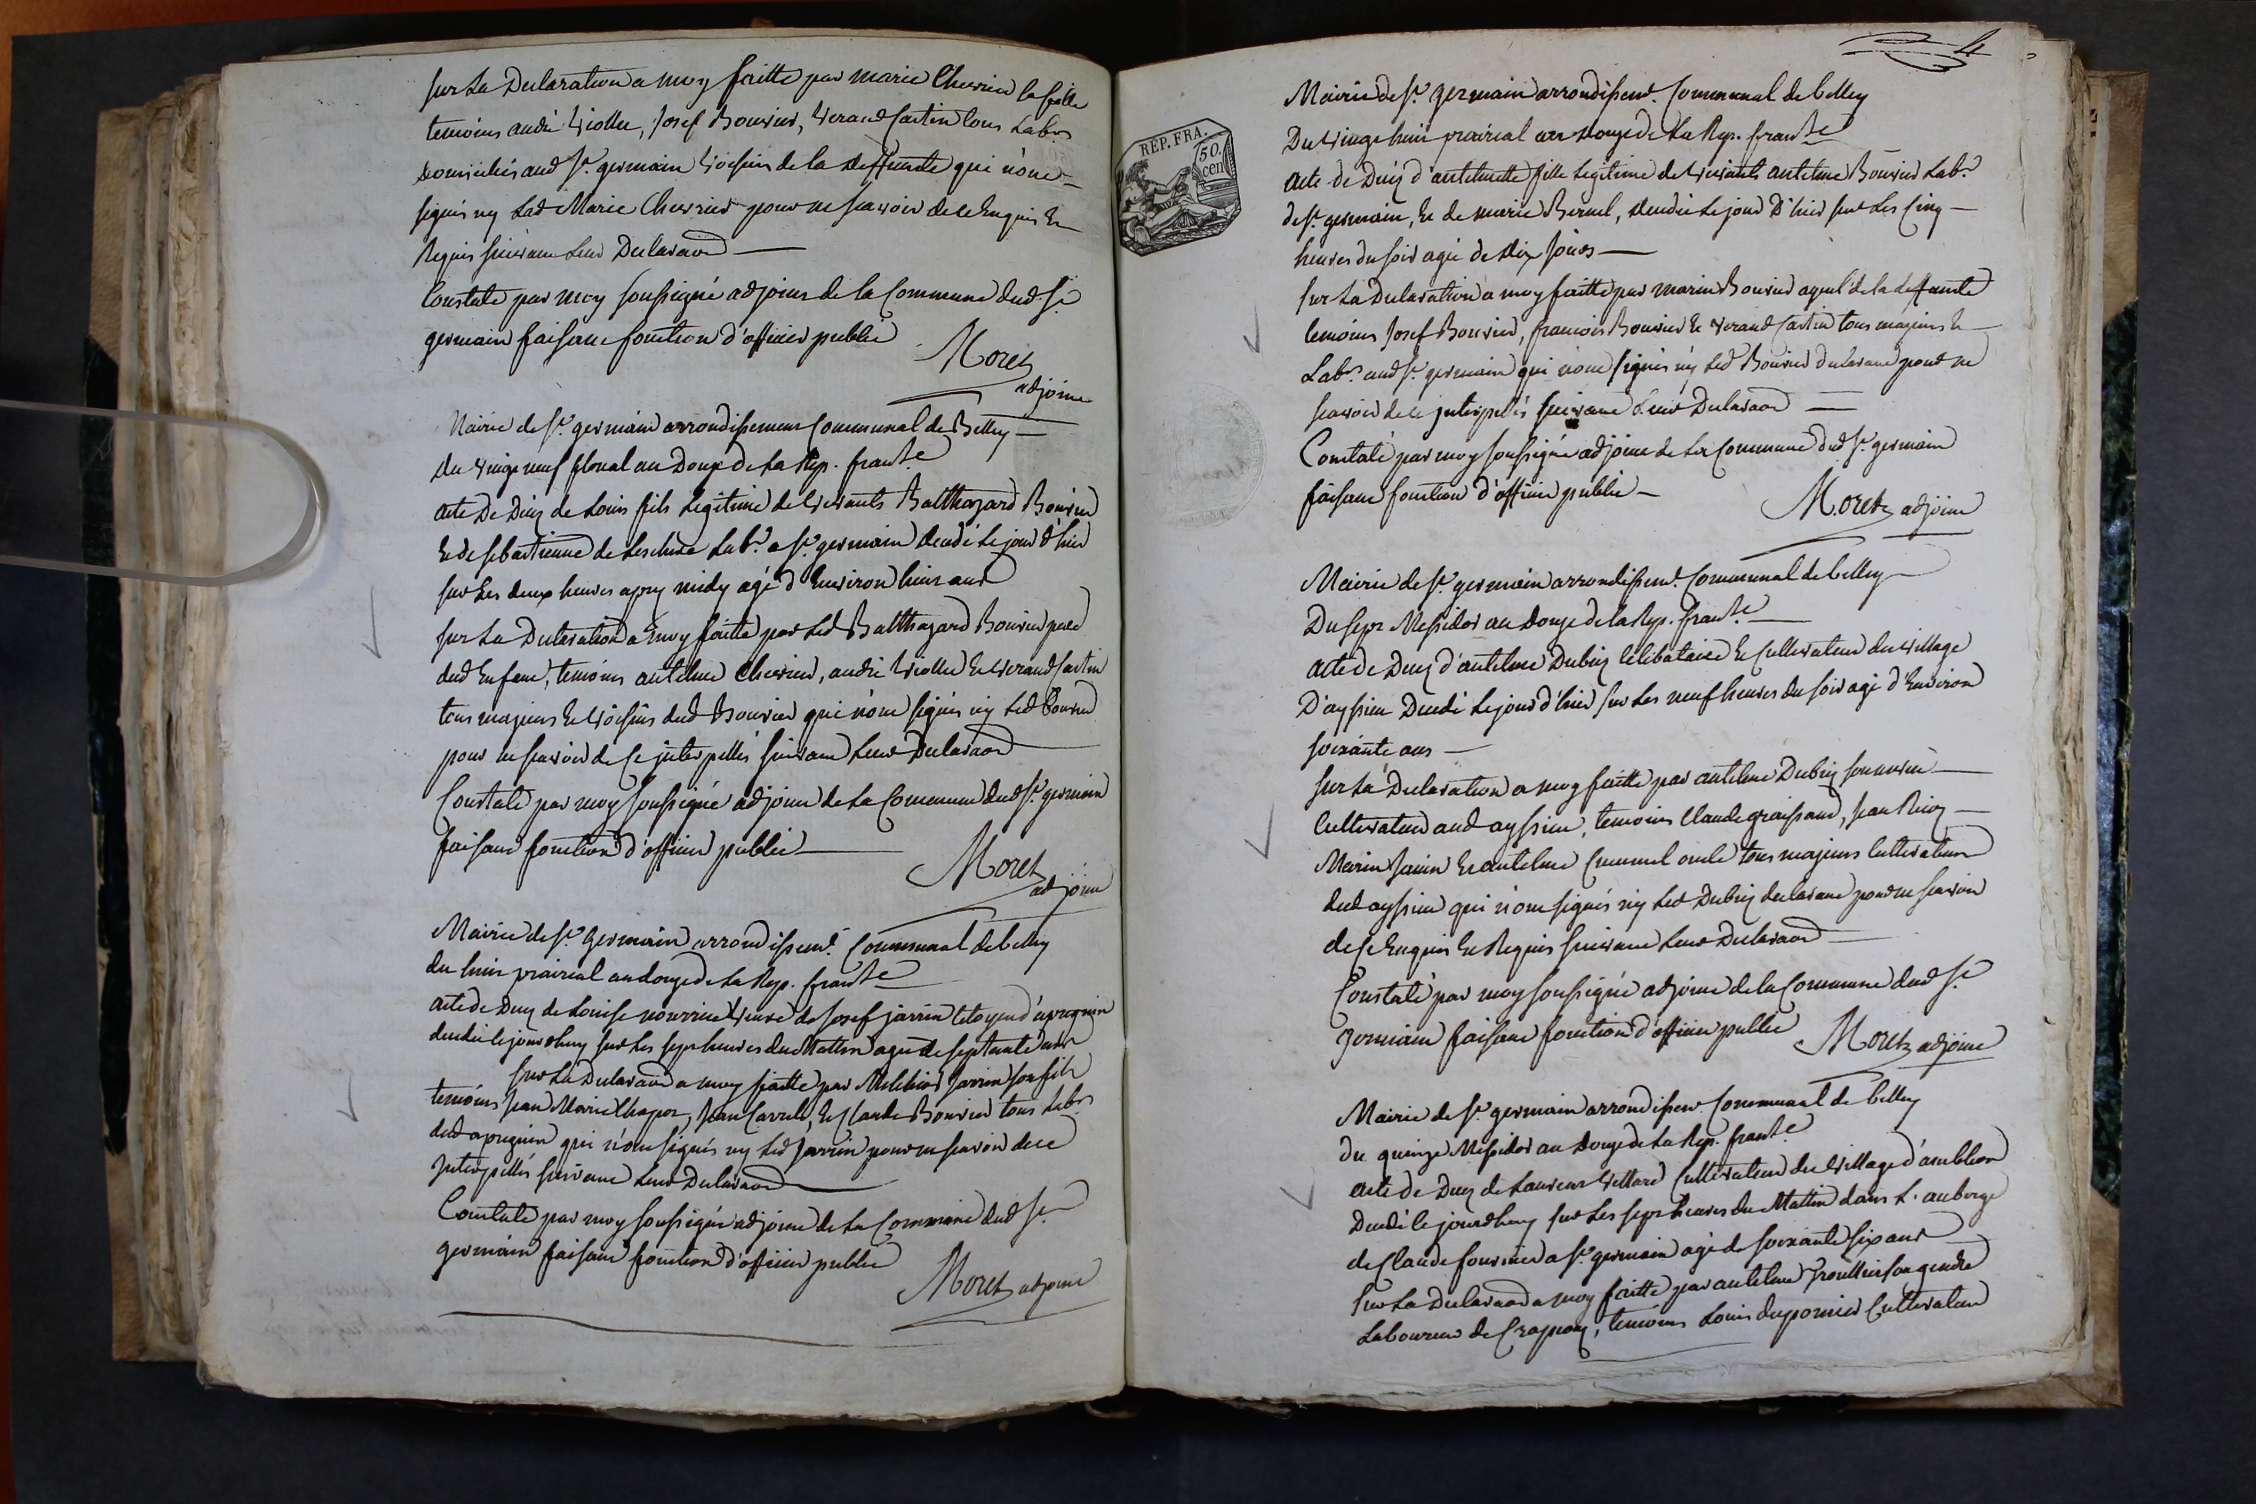 sur La Declaration a moy faitte par marie Chevrier la fille
temoins andré Viollet, Josef Bouvier, Verand Cartin tous Labrs
domicilies aud St. germain Voisin de la deffunte qui n'ont
signés ny Lad Marie Chevrier pour ne scavoir de ce Enquis Et
Requis suivant Leur Declaraon
Constaté par moy soussigné adjoint de la Commune dud St
germain faisant fonction d'officier public
Moret
adjoint
Mairie de St. germain arrondissement Communal de Belley
du vingt neuf floreal an Douze de La Rep. franse
acte De Decez de Louis fils Legitime de vivants Balthazard Bouvier
Et de sebastienne de Lescluse Labr. a St. germain decedé Le jour d'hier
sur Les deux heures apres midy agé d'Environ huit ans
sur La Declaration a moy faitte par Led Balthazard Bouvier pere
dud Enfant, temoins antelme Chevrier, andré Viollet Et Verand Cartin
tous majeurs Et voisins dud Bouvier qui n'ont signés ny Led Bouvier
pour ne scavoir de Ce interpellés suivant Leur Declaraon
Constaté par moy soussigné adjoint de La Commune dud St. germain
faisant fonction d'officier public
Moret
adjoint
Mairie de St. germain arrondissemt. Communal de belley
du huit prairial an douze de La Rep. franse
acte de Decez de Louise nourrice veuve de Josef jarrin Citoyen d'apregnin
decedée le jourdhuy sur Les sept heures du Mattin agée de septante ans
sur La Declaraon a moy faitte par Melchior Jarrin son fils
temoins Jean Marie Chapot, Jean Carrel, Et Claude Bouvier tous Labrs
dud apregnin qui n'ont signés ny Led Jarrin pour ne scavoir de ce
Interpellés suivant Leur Declaraon
Constaté par moy soussigné adjoint de La Commune dud St
germain faisant fonction d'officier public
Moret adjoint
4
REP. FRA.
50.
cen
Mairie de St. germain arrondissemt. Communal de belley
Du vingt huit prairial an douze de La Rep. franse
acte de Decez d'antelmette fille Legitime de vivants antelme Bouvier Labr.
de St. germain, Et de marie Bernel, decedée Le jour D'hier sur Les Cinq
heures du soir agée de dix jours
sur La Declaration a moy faitte par marin Bouvier ayeul de la deffunte
temoins Josef Bouvier, francois Bouvier Et Verand Cartin tous majeurs Et
Labrs. aud St. germain qui n'ont signés ny Led Bouvier declarant pour ne
scavoir de ce interpellés suivant Leur Declaraon
Constaté par moy soussigné adjoint de La Commune dud St. germain
faisant fonction d'officier public
Moret adjoint
Mairie de St. germain arrondissemt. Communal de belley
Du sept Messidor an Douze de la Rep. franse
acte de Decez d'antelme Dubiez Celibataire Et Cultivateur du village
D'ayssieu Decedé Le jour d'hier sur Les neuf heures du soir agé d'Environ
soixante ans
sur La Declaration a moy faitte par antelme Dubiez son neveu
Cultivateur aud ayssieu, temoins Claude graissand, Jean
Marin Et antelme oncle tous majeurs Cultivateurs
dud ayssieu qui n'ont signés ny Led Dubiez declarant pour ne scavoir
de Ce Enquis Et Requis suivant Leur Declaraon
Constaté par moy soussigné adjoint de la Commune dud St
germain faisant fonction d'officier public Moret adjoint
Mairie de St. germain arrondissemt. Communal de belley
du quinze Messidor an Douze de La Rep. franse
acte de Decez de Laurent Cultivateur du village d'amblion
Decedé le jourdhuy sur Les sept heures du Mattin dans L'auberge
de Claude fournier a St. germain agé de soixante six ans
sur La Declaraon a moy faitte par antelme son gendre
Laboureur de, temoins Louis duportier Cultivateur